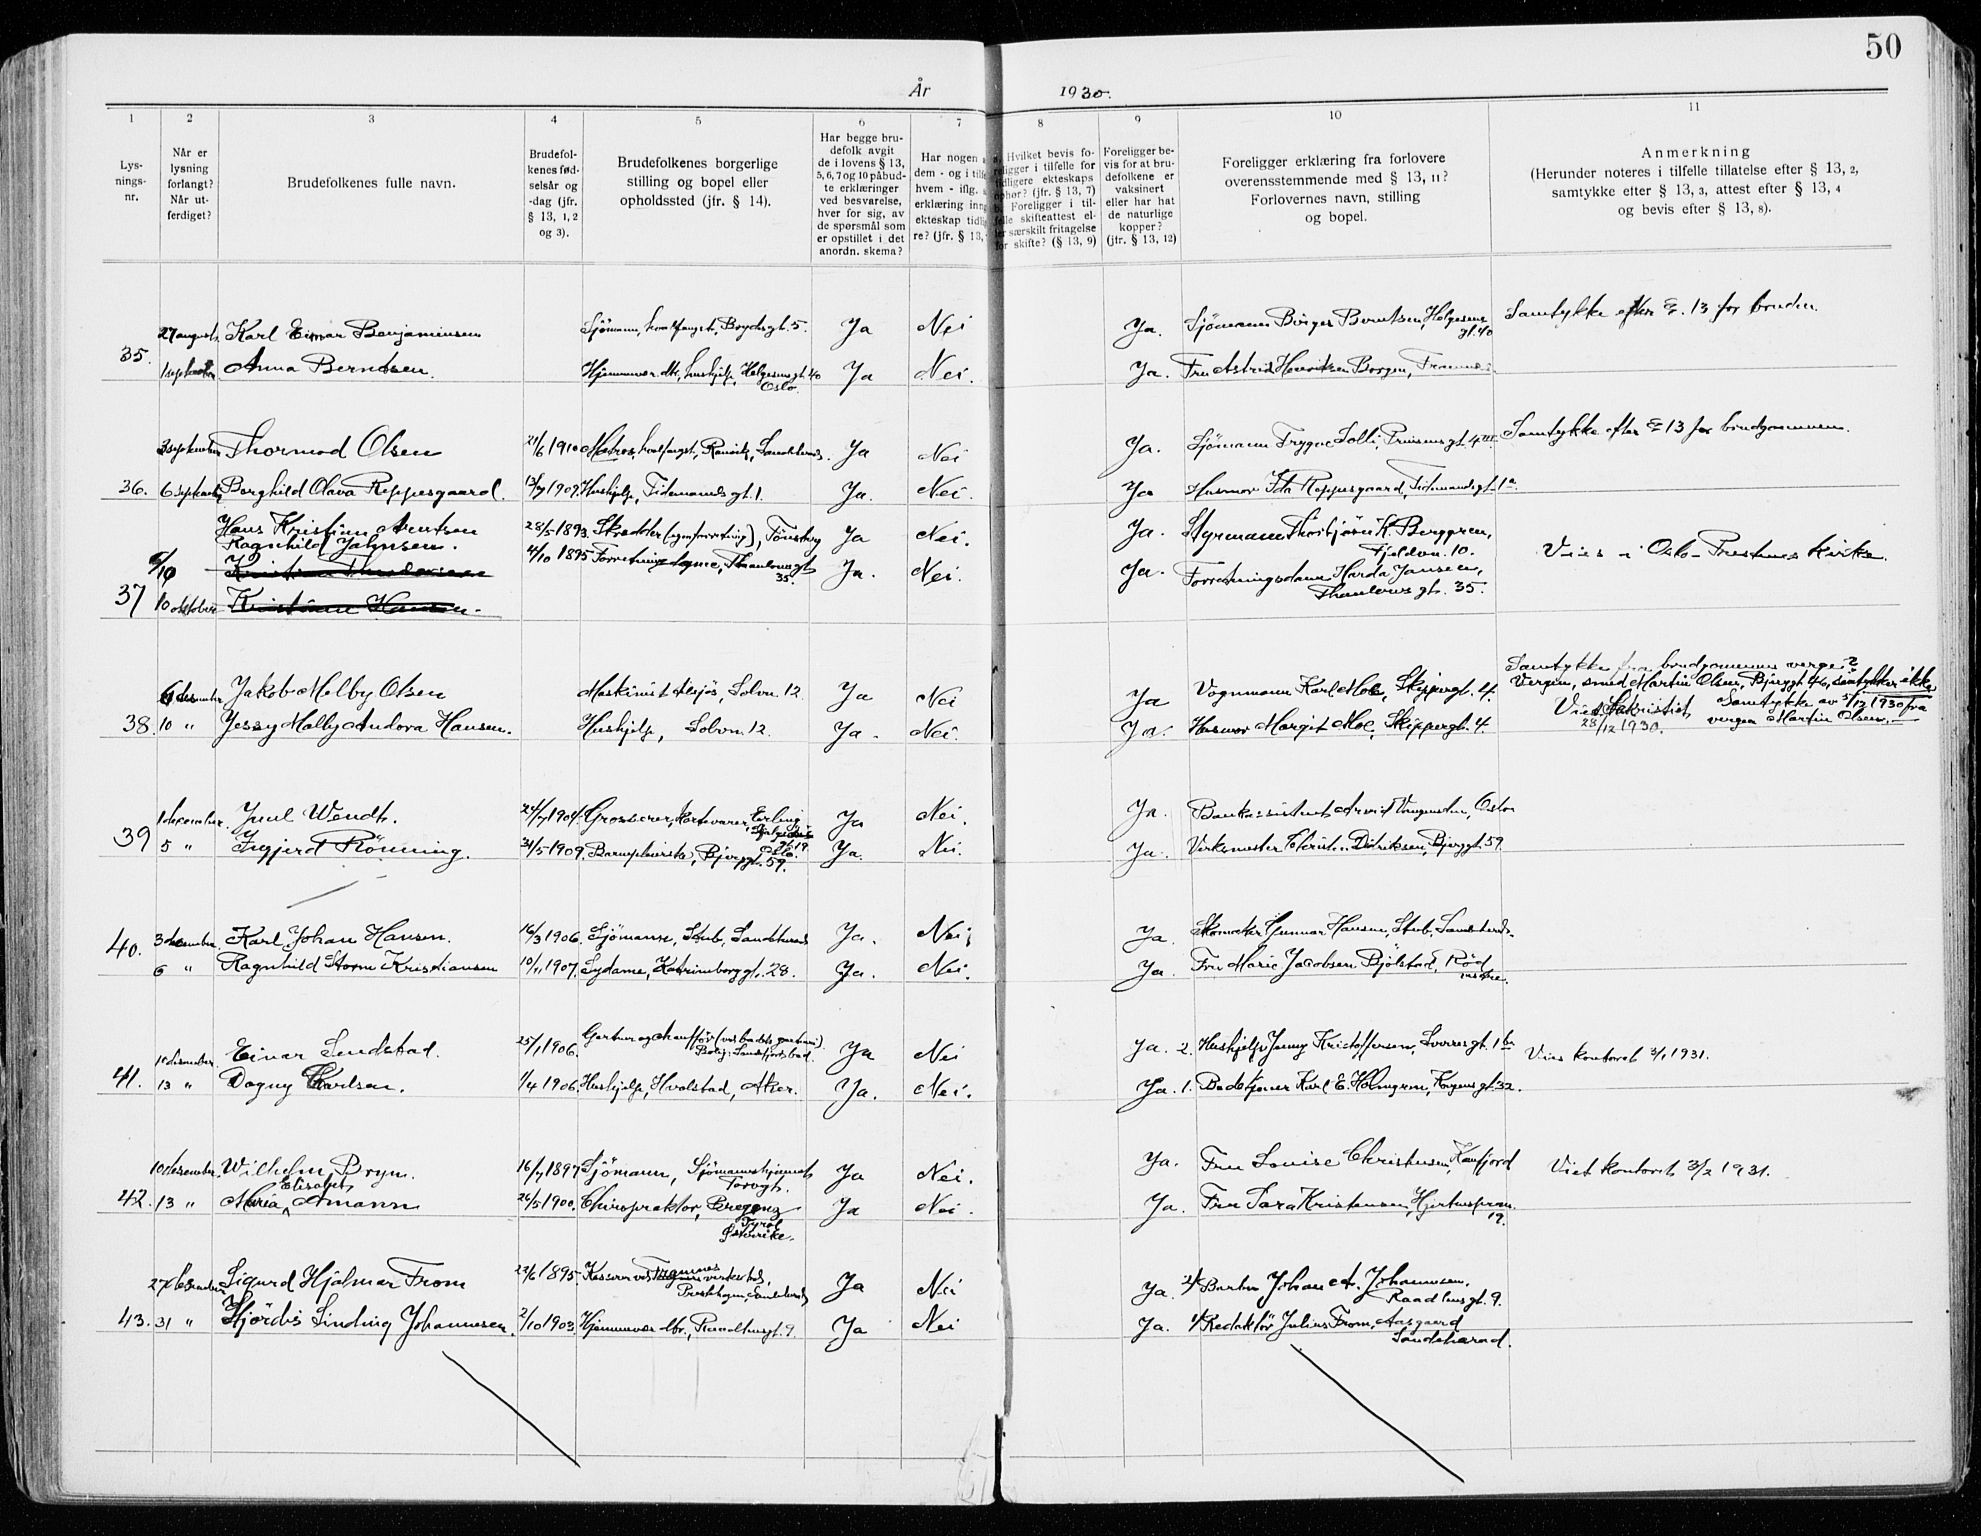 50
År 1930.
1 2 3 4 5 6 7 8 9 10 11
Lys-
nings-
nr.
Når er
lysning
forlangt?
Når ut-
ferdiget?
Brudefolkenes fulle navn.
Brudefol-
kenes fød-
selsår og
-dag (jfr.
§ 13, 1, 2
og 3).
Brudefolkenes borgerlige
stilling og bopel eller
opholdssted (jfr. § 14).
Har begge bru-
defolk avgit
de i lovens § 13,
5, 6, 7 og 10 påbud-
te erklæringer
ved besvarelse,
hver for sig, av
de spørsmål som
er opstillet i det
anordn. skema?
Har nogen
dem - og i
hvem - iflg.
erklæring
ekteskap
re? (jfr. § 13,
Hvilket bevis fo-
religger i tilfelle for
tidligere ekteskaps
ophør? (jfr. § 13, 7)
b. Foreligger i til-
felle skifteattest el-
ler særskilt fritagelse
for skifte? (§ 13, 9)
Foreligger be-
vis for at bru-
defolkene er
vaksinert
eller har hat
de naturlige
kopper?
(jfr. § 13, 12)
Foreligger erklæring fra forlovere
overensstemmende med § 13, 11?
Forlovernes navn, stilling
og bopel.
Anmerkning
(Herunder noteres i tilfelle tillatelse efter § 13, 2,
samtykke efter § 13, 3, attest efter § 13, 4
og bevis efter § 13, 8).
27 august. Karl Einar Benjaminsen Sjømann, hvalfangst, Brydesgt. 5. Ja Nei Ja. Sjømann Birger Berntsen, Helgesens gt. 40 Samtykke efter § 13 for bruden.
35. 1 september Anna Berndsen. Hjemmevær. dtr., hushjelp, Helgesensgt. 40 Oslo. Ja Nei. Ja. Fru Astrid Henriksen Borgen,
3 september Thormod Olsen 21/6 1910 Matros, hvalfangst, Sandeherred. Ja Nei Ja. Sjømann Trygve Solli, Prinsensgt. 4 Samtykke efter § 13 for brudgommen.
36. 6 september Borghild Olava Reppesgaard. 1909. Hushjelp, Tidemandsgt. 1. Ja. Nei. Ja Husmor Reppesgaard, Tidemandsgt. 1a.
Hans Kristian Arntsen 28/5 1893. Skredder (egen forretning), Tönsberg Ja Nei. Ja. Styrmann Thorbjörn K. Berggren, Fjeldvn. 10.
Ragnhild Jahnsen. 4/10 1895 Forretningsdame, Thaulowsgt 35. Ja. Nei. Ja. Forretningsdame Harda Jansen, Thaulowsgt. 35. Vies i Oslo - Frestnes kirke.
6/10 Kristian
37 10 oktober Kristian Hansen.
6 desember Jakob Melby Olsen Maskinist tilsjøs, Solvn. 12 Ja Nei Ja Vognmann Karl Moe, Skippergt. 4. Samtykke fra brudgommens verge?
Vergen, smed Martin Olsen, Bjerggt. 46, samtykker ikke
38. 10 " Jessy Molly Andora Hansen. Hushjelp, Solvn. 12. Ja. Nei. Ja. Husmor Margit Moe, Skippergt. 4. Viet Sakristiet 28/12 1930. Samtykke av 5/12 1930 fra vergen Martin Olsen.
1 desember. Juul Wendt. 1904. Grosserer, kortevarer, Erling Skjalgsöns gt. 19. Oslo. Ja Nei. Ja. Bankassistent Arvid Oslo
39 5 " Ingjerd Rönning. 31/5 1909. Barnepleierske, Bjerggt. 59. Ja. Nei. Ja. Verksmester Christen Didriksen, Bjerggt. 59.
40. 3 desember. Karl Johan Hansen. 16/3 1906. Sjömann, Stub, Sandeherred Ja. Nei; Ja. Skomaker Gunnar Hansen, Stub, Sandeherred.
6 " Ragnhild Storm Kristiansen 10/11 1907. Sydame, Katrineborggt. 28. Ja. Nei. Ja Fru Marie Jacobsen Bjölstad, Röd
10 desember. Einar Sundstad. 25/1 1906. Gartner og chauffør (ved badets gartneri). Bolig: Sandefjords bad. Ja Nei Ja. 2. Hushjelp Jenny Kristoffersen, Sverresgt. 1 Vies kontoret 3/1 1931.
41. 13 " Dagny Carlsen. 1/4 1906. Hushjelp, Hvalstad, Asker. Ja. Nei. Ja. 1. Badetjener Karl E. Holmgren, Kongensgt. 32.
10 desember. Wilhelm Bryn. 16/7 1897 Sjömann, Sjömannshjemmet Torvgt. Ja Nei. Ja. Fru Louise Christensen, Kamfjord Viet kontoret 3/2 1931.
42. 13 " Maria Elisabet Amann 26/5 1900. Chiropraktor, Bregenz Tyrol Østerrike. Ja Nei. Ja. Fru Sara Kristensen, Hjertnesprom. 19.
27 desember Sigurd Hjalmar From 22/6 1895. Kasserer ved Framnes verksted, Presthagen, Sandeherred Ja Nei Ja. 2/ Barber Johan A. Johannesen. Raadhusgt. 9.
43. 31 " Hjördis Sinding Johannesen. 2/10 1903. Hjemmevær. dtr., Raadhusgt. 9 Ja Nei Ja. 1/ Redaktör Julius From, Aasgaard Sandeherred.